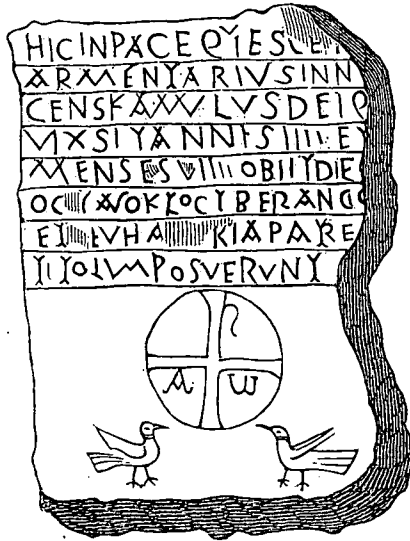 HICINPACEQVIESCET
ARMENTARIVSINN
CENSFAMVLVSDEIQ
VIXSITANNISIIIIET
MENSESVIIIIOBIITDIE
AVOKLOCTBERANDO
PATRE
TITOLVMPOSVERVNT
A W